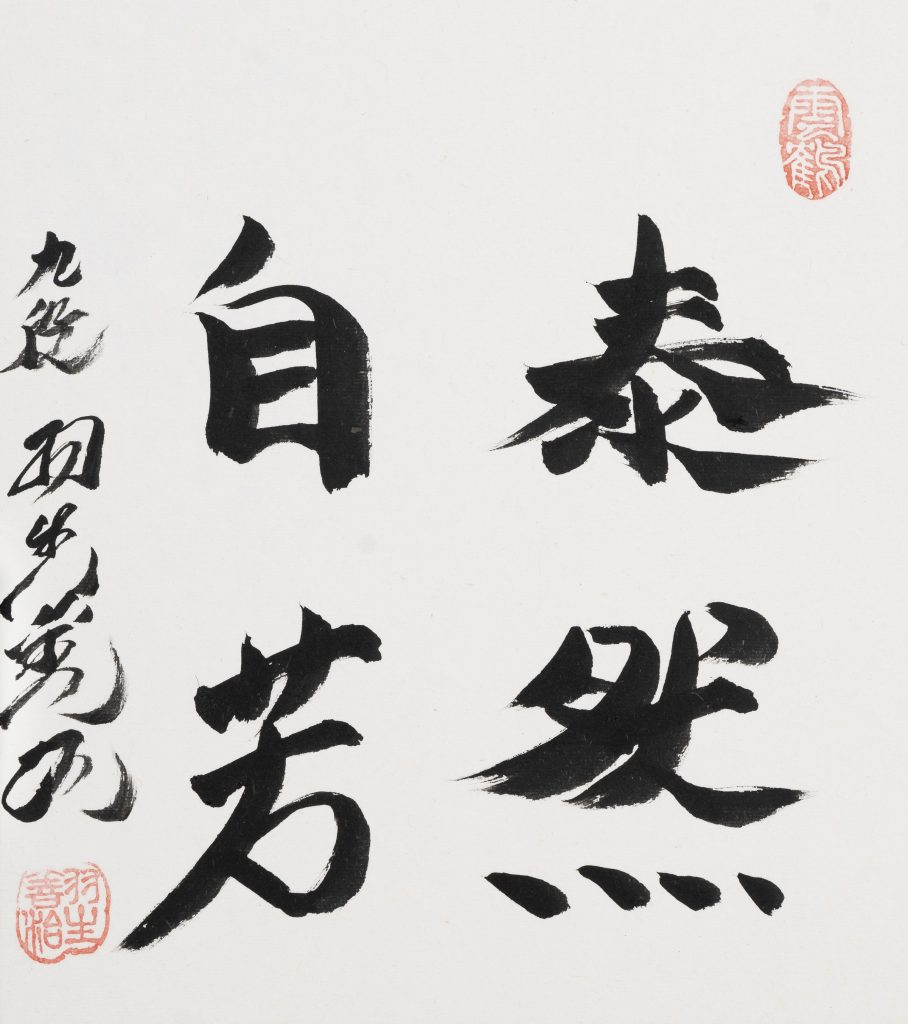 泰然
自芳
九段 羽生善治
雲鶴
羽生
善治